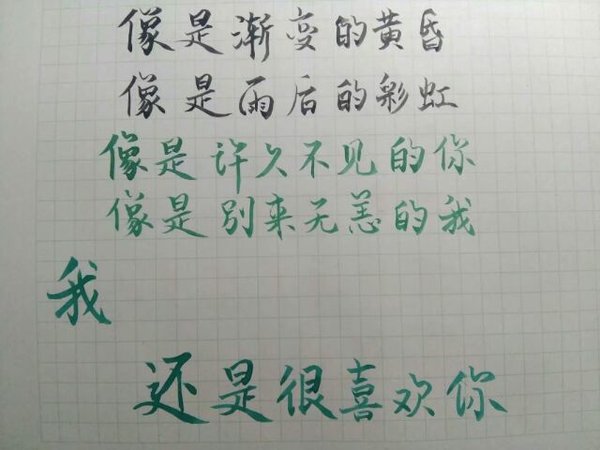 像是渐变的黄昏
像是雨后的彩虹
像是许久不见的你
像是别来无恙的我
我
还是很喜欢你